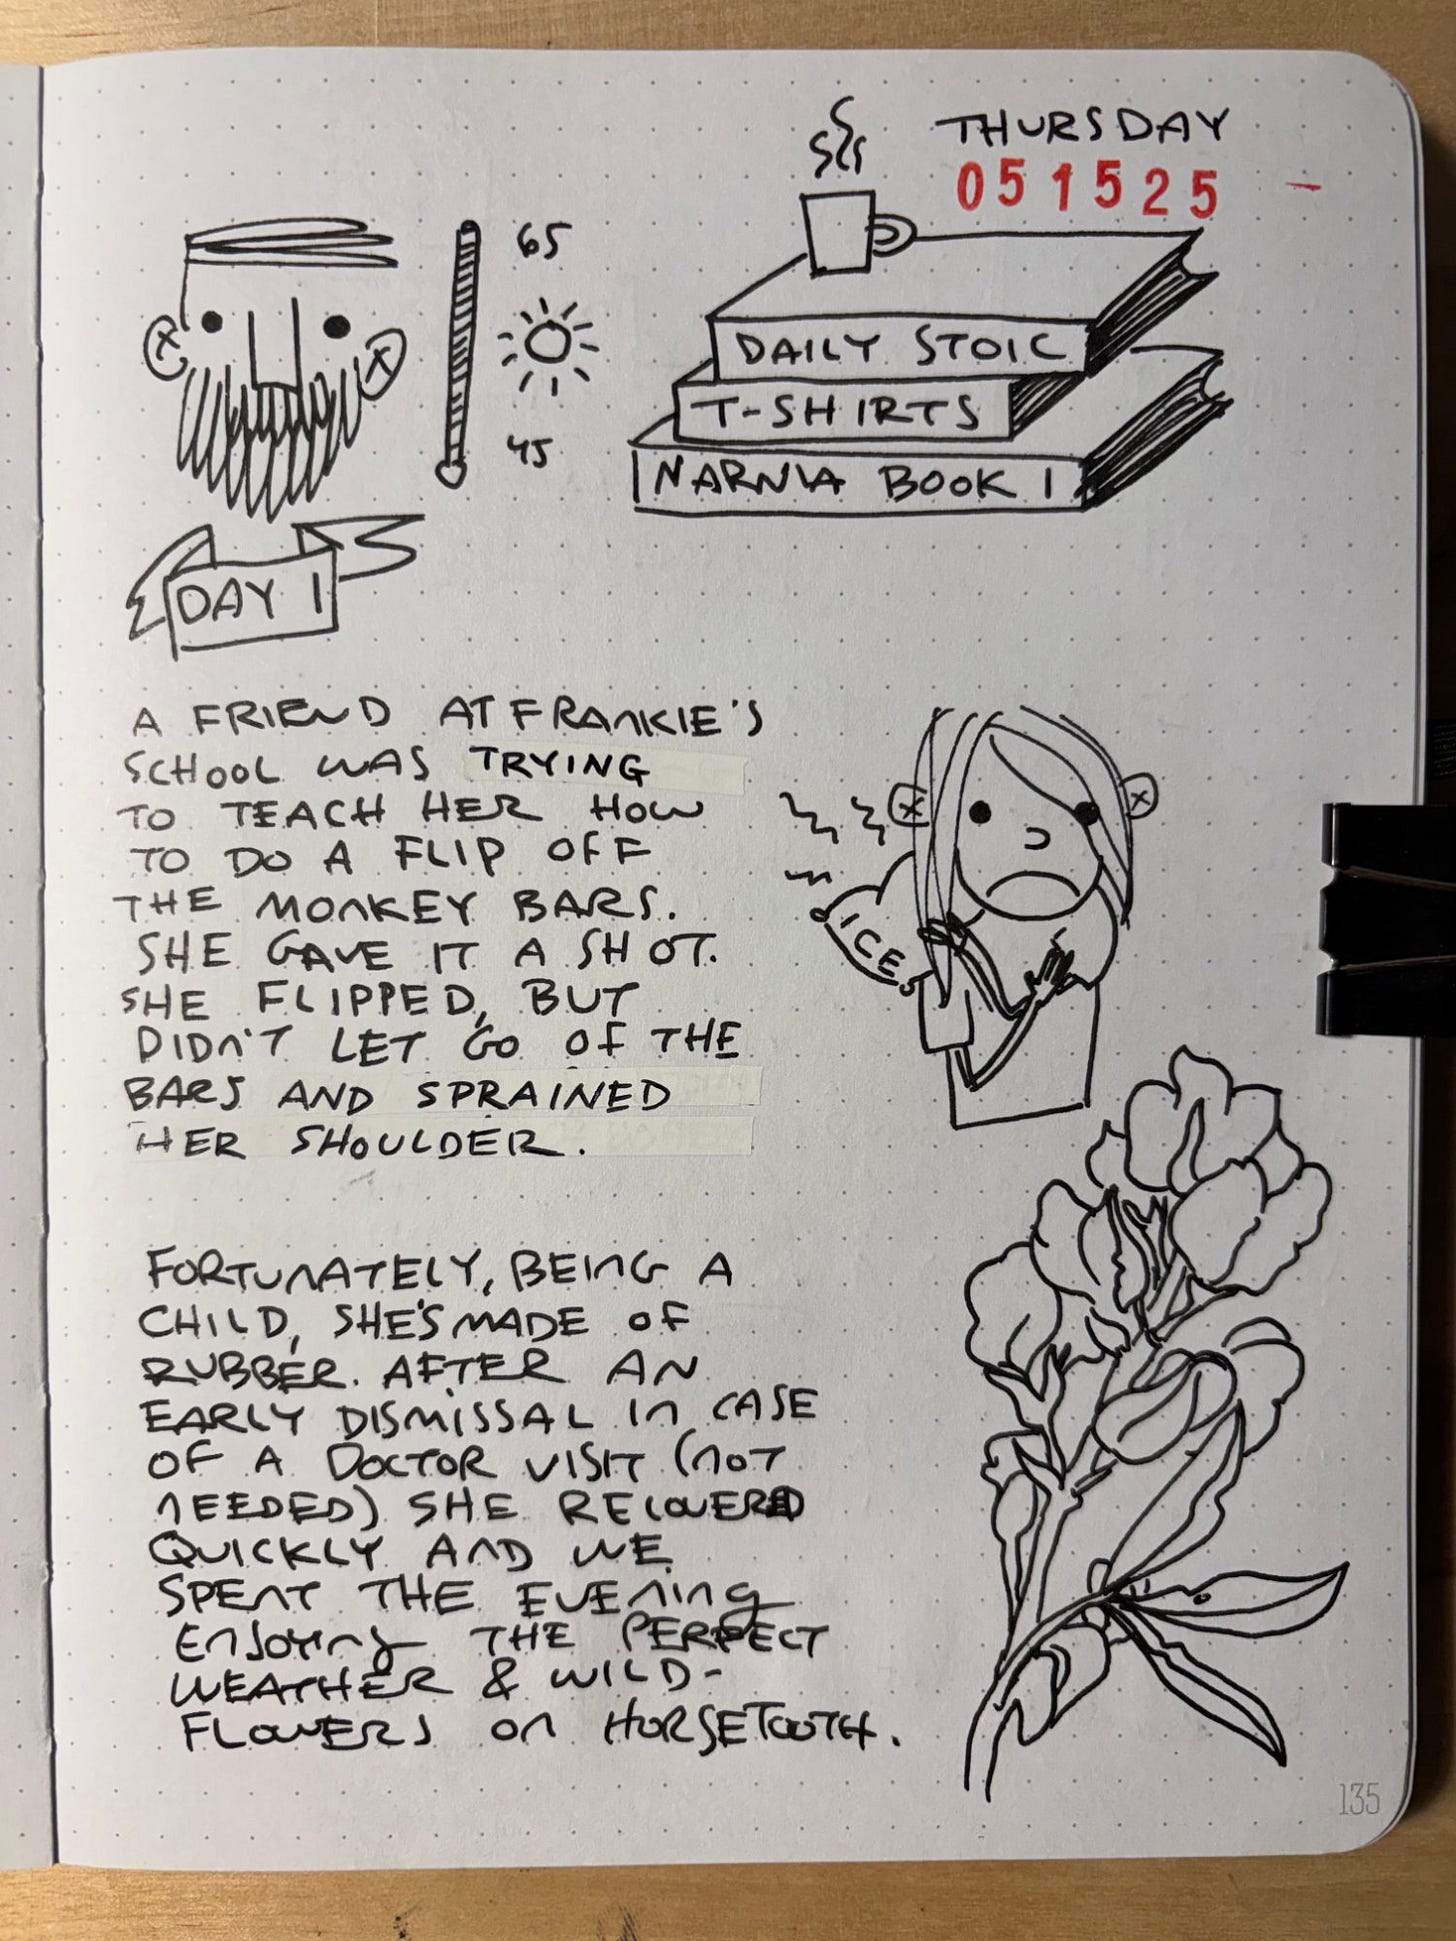 THURSDAY
051525 -
65
45
DAILY STOIC
T-SHIRTS
NARNIA BOOK 1
DAY 1
A FRIEND AT FRANKIE'S
SCHOOL WAS TRYING
TO TEACH HER HOW
TO DO A FLIP OFF
THE MONKEY BARS.
SHE GAVE IT A SHOT.
SHE FLIPPED, BUT
DIDN'T LET GO OF THE
BARS AND SPRAINED
HER SHOULDER.
ICE
FORTUNATELY, BEING A
CHILD, SHE'S MADE OF
RUBBER. AFTER AN
EARLY DISMISSAL IN CASE
OF A DOCTOR VISIT (NOT
NEEDED) SHE RECOVERED
QUICKLY AND WE
SPENT THE EVENING
ENJOYING THE PERFECT
WEATHER & WILD-
FLOWERS ON HORSETOOTH.
135